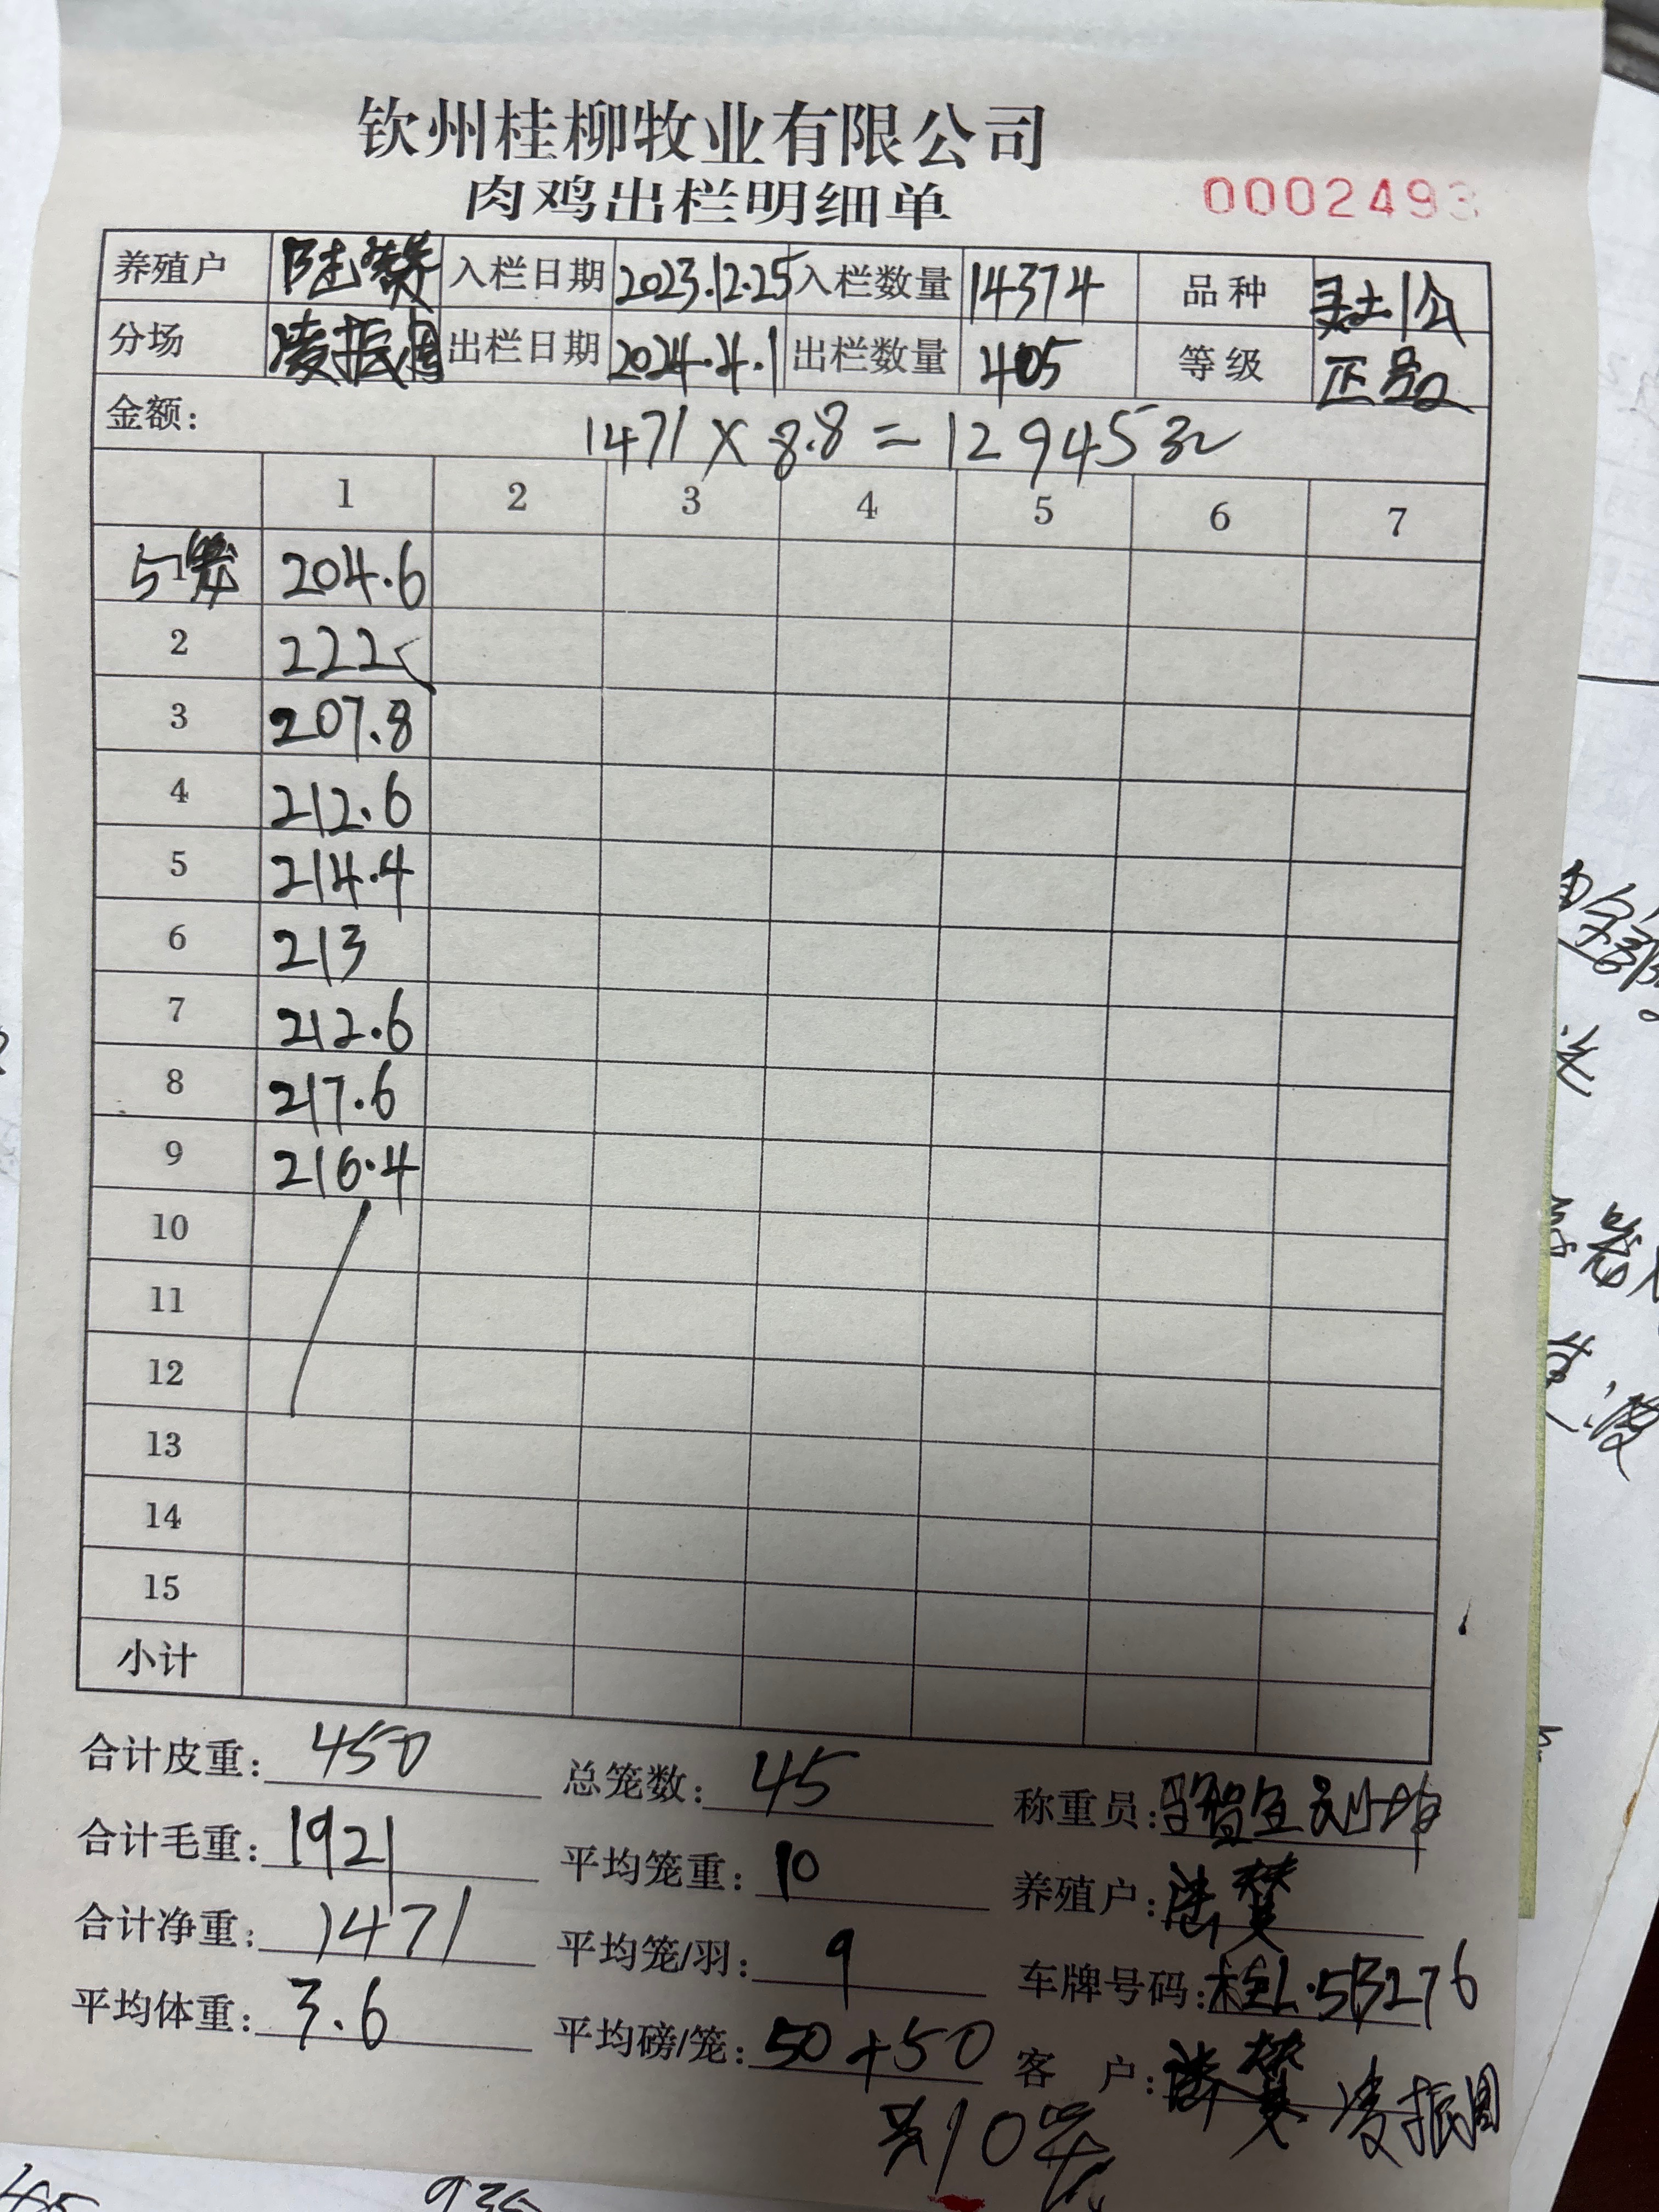 钦州桂柳牧业有限公司
肉鸡出栏明细单 0002493
养殖户 陆 入栏日期 2023.12.25 入栏数量 14374 品种 灵土1公
分场 凌振国 出栏日期 2024.4.1 出栏数量 405 等级 正品
金额: 1471 X 8.8 = 12945元
1 2 3 4 5 6 7
5笼 1 204.6
2 222
3 207.8
4 212.6
5 214.4
6 213
7 212.6
8 217.6
9 216.4
10
11
12
13
14
15
小计
合计皮重: 450 总笼数: 45 称重员:
合计毛重: 1921 平均笼重: 10 养殖户:
合计净重: 1471 平均笼/羽: 9 车牌号码: 桂L·5B276
平均体重: 3.6 平均磅/笼: 50+50 客 户: 凌振国
共10笼